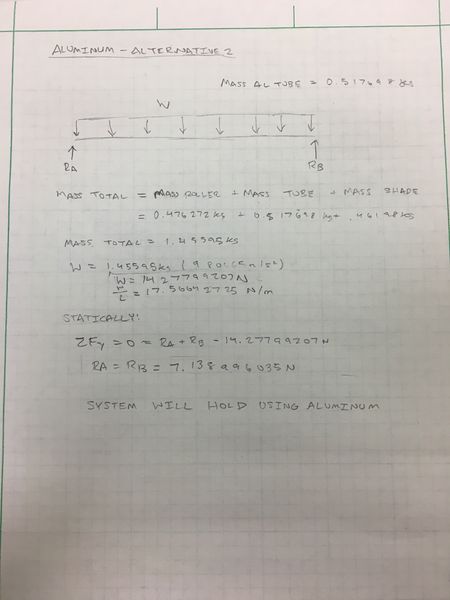 ALUMINUM - ALTERNATIVE 2
MASS AL TUBE = 0.517698 KG
W
RA RB
MASS TOTAL = MASS ROLLER + MASS TUBE + MASS SHADE
= 0.476272 KG + 0.517698 KG + .46198 KG
MASS TOTAL = 1.45595 KG
W = 1.45595 KG (
W = 14.27799207 N
= 17.56642725 N/m
STATICALLY:
ΣFy = 0 = RA + RB - 14.27799207 N
RA = RB = 7.138996035 N
SYSTEM WILL HOLD USING ALUMINUM